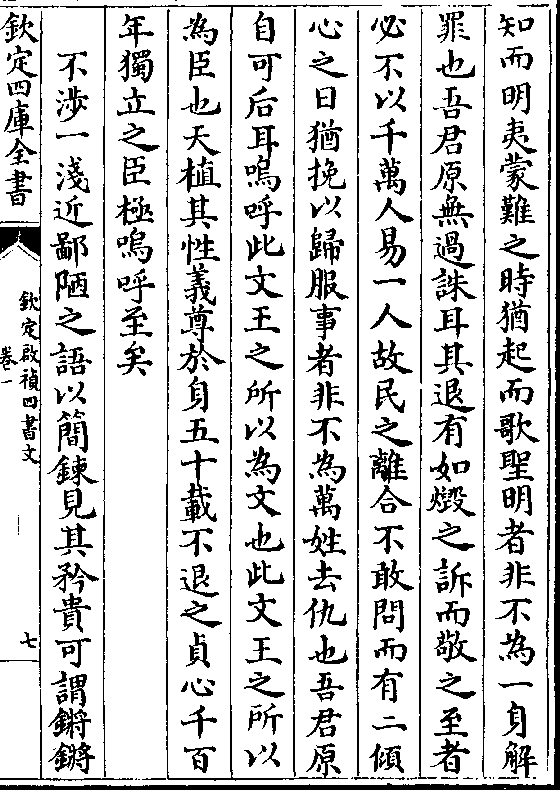 知而明夷蒙難之時猶起而歌聖明者非不為一身解
罪也吾君原無過誅耳其退有如燬之訴而敬之至者
必不以千萬人易一人故民之離合不敢問而有二傾
心之日猶挽以歸服事者非不為萬姓去仇也吾君原
自可后耳嗚呼此文王之所以為文也此文王之所以
為臣也天植其性義尊於身五十載不退之貞心千百
年獨立之臣極嗚呼至矣
不涉一淺近鄙陋之語以簡鍊見其矜貴可謂鏘鏘
欽定四庫全書
欽定啟禎四書文
卷一
七